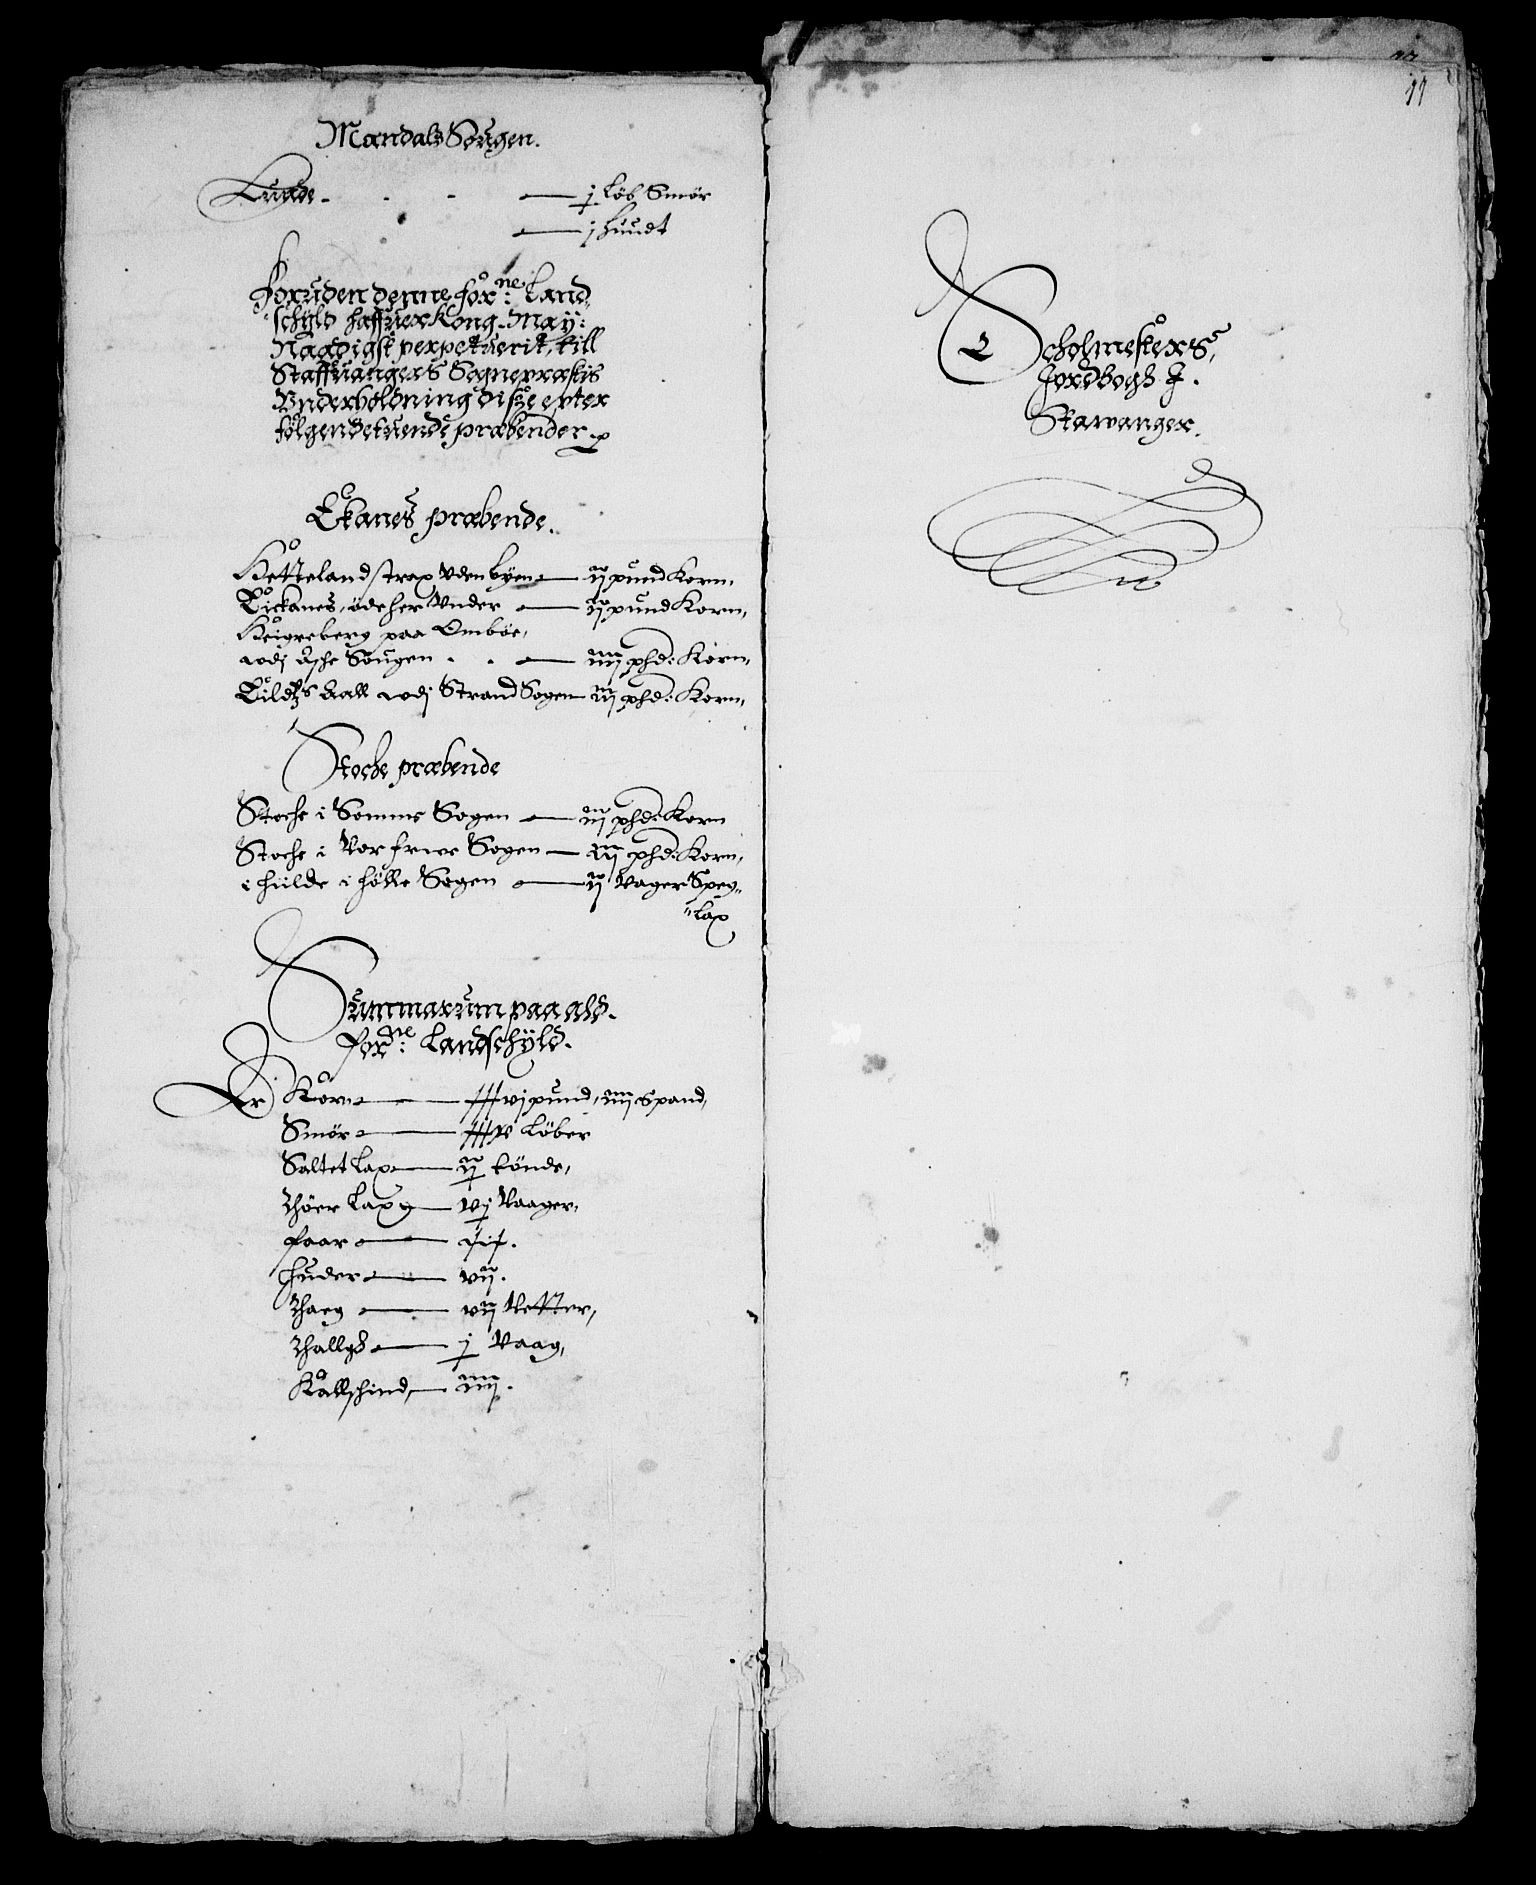 Mandals Sougen.
Lunde - - - — j Löb Smör
— j huudt
Foruden denne for:ne Land-
schÿld haffuer Kong. May:
Naadigst perpetuerit, till
Staffuangers Sognepræstis
Underholdning disze epter
følgende tuende præbender.
Ekanes præbende.
Hetteland strax uden byen — ij pund Korn,
Eickanes, öde her under — ij pund Korn,
Heigreberg paa Omböe,
wdj Aske Sougen . . — iiij phd: Korn,
Eildtzs Aall wdj Strand Sogen iij phd: Korn,
Stocke præbende
Stocke i Somme Sogen — iij phd: Korn
Stocke i Vor frwe Sogen — iij phd: Korn,
i hülde i hölle Sogen — ij Vager Speg-
"lax
Summarum paa ald.
for:ne Landschÿld.
Er Korn — vj pund, iiij spand,
Smör — Löber
Saltet Lax — ij tönde,
Thöer Lax — vj Vaager,
Faar —
Huder — vij.
Thaeg — vij Vetter,
Thallgh — j Vaag,
Kallskind — iiij.
11
Scholmesters,
Jordbogh I.
Stawanger.